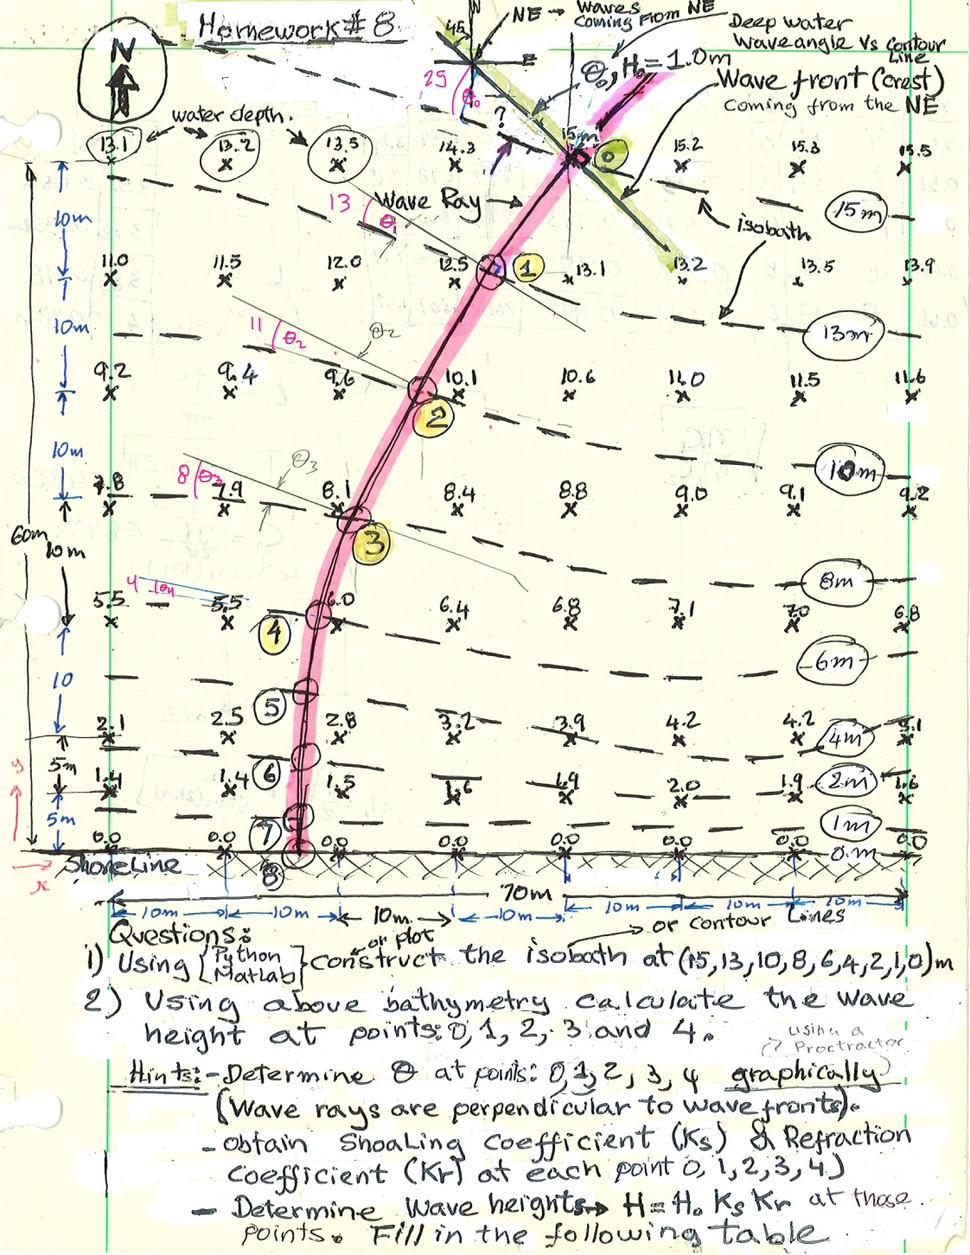 Homework # 8
N
N
E
45
NE → Waves
Coming From NE
Deep water
Wave angle Vs Contour
Line
θ₀, H₀ = 1.0m
29
θ₀
?
Wave front (crest)
coming from the NE
water depth.
13.1 13.2 13.5 14.3 15m 0 15.2 15.3 15.5
Wave Ray →
13 θ₁
isobath
15m
10m
11.0 11.5 12.0 12.5 1 13.1 13.2 13.5 13.9
10m
11 θ₂ θ₂
13m
9.2 9.4 9.6 10.1 10.6 11.0 11.5 11.6
2
10m
10m
8 θ₃ θ₃
7.8 7.9 8.1 8.4 8.8 9.0 9.1 9.2
3
60m
10m
8m
4 θ₄
5.5 5.5 6.0 6.4 6.8 7.1 7.0 6.8
4
6m
10
5
2.1 2.5 2.8 3.2 3.9 4.2 4.2 3.1
4m
5m
6
1.4 1.4 1.5 1.6 1.9 2.0 1.9 1.6
2m
y
5m
7
1m
0.0 0.0 0.0 0.0 0.0 0.0 0.0
0m
x
Shoreline
8
70m
10m 10m 10m 10m 10m 10m 10m
or contour Lines
Questions:
or plot
1) Using {Python Matlab} construct the isobath at (15,13,10,8,6,4,2,1,0)m
2) Using above bathymetry calculate the wave
height at points: 0, 1, 2, 3 and 4.
using a
Proctractor
Hints: - Determine θ at points: 0, 1, 2, 3, 4 graphically
(Wave rays are perpendicular to wavefronts).
- obtain Shoaling Coefficient (Ks) & Refraction
Coefficient (Kr) at each point 0, 1, 2, 3, 4)
- Determine Wave heights → H = H₀ Ks Kr at those
points. Fill in the following table